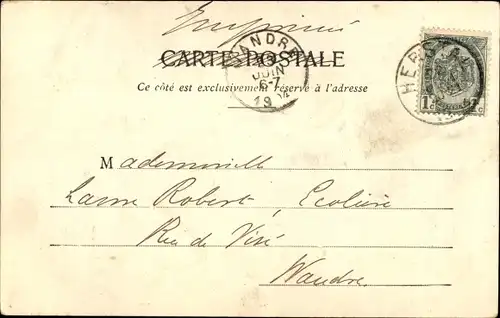 Imprimé
CARTE POSTALE
WANDRE
JUIN
6-7
1904
HER
1c 1c
Ce côté est exclusivement réservé à l'adresse
Mademoiselle
Laure Robert, Ecolière
Rue de Visé
Wandre.